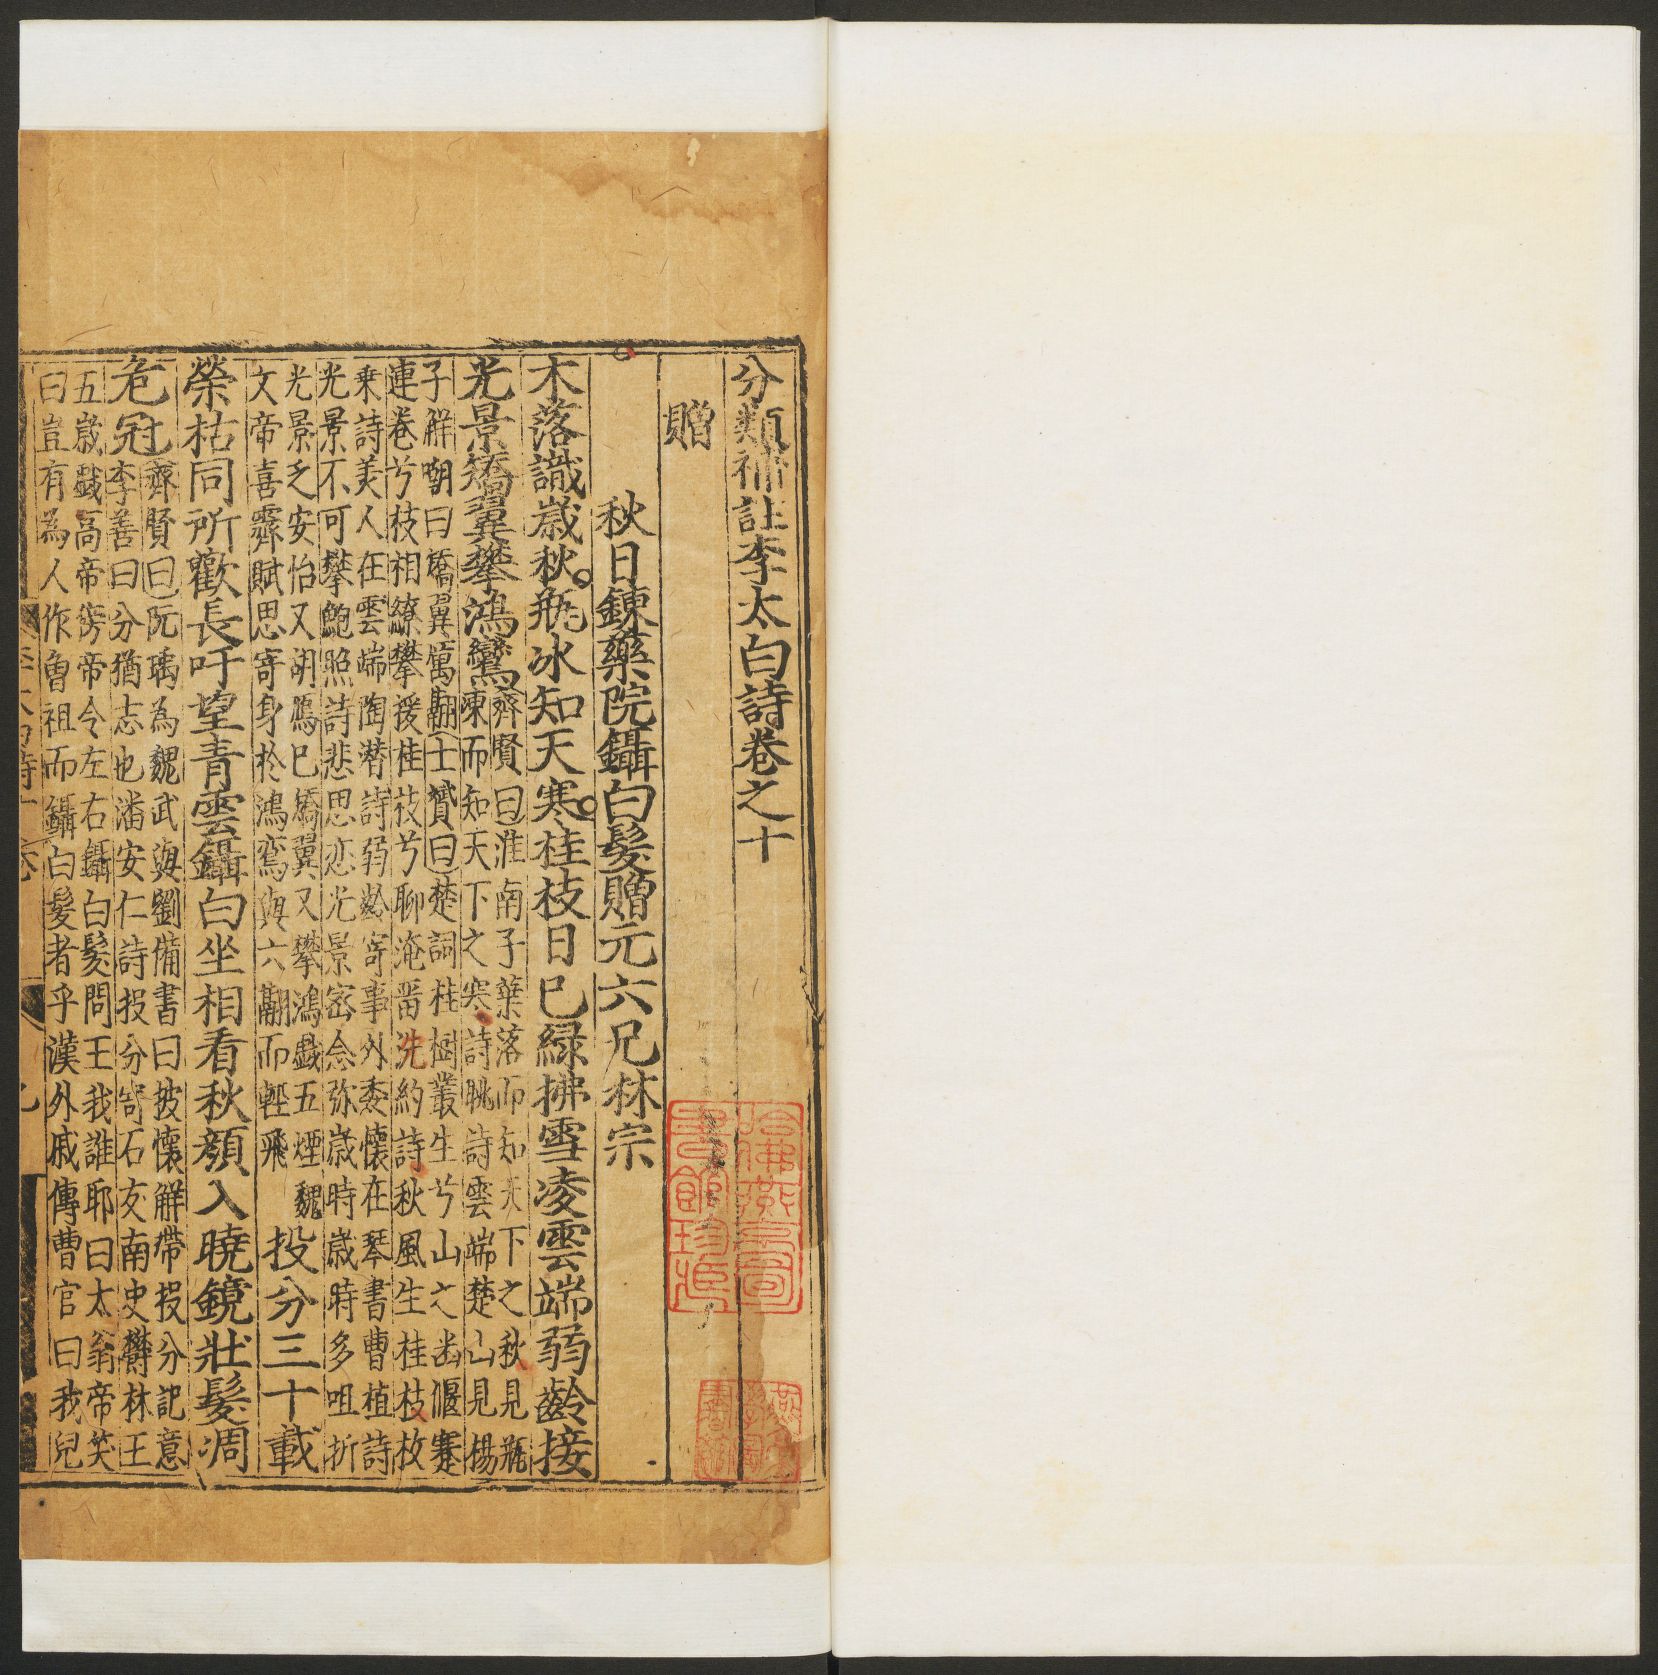 分類補註李太白詩卷之十
贈
秋日鍊藥院鑷白髮贈元六兄林宗
木落識歲秋瓶冰知天寒桂枝日已綠拂雪凌雲端弱齡接
光景矯翼攀鴻鸞
齊賢曰淮南子葉落而知天下之秋見瓶
凍而知天下之寒詩眺詩雲端楚山見楊
子解嘲曰矯翼厲翮士贇曰楚詞桂樹叢生兮山之幽偃蹇
連卷兮枝相繚攀援桂枝兮聊淹留沈約詩秋風生桂枝枚
乗詩美人在雲端陶潜詩弱齡寄事外委懷在琴書曹植詩
光景不可攀鮑照詩悲思恋光景密念弥歲時歲時多咀折
光景乏安怡又胡鴈已矯翼又攀鴻戯五煙魏
文帝喜霽賦思寄身於鴻鸞與六翮而輕飛
投分三十載
榮枯同所歡長吁望青雲鑷白坐相看秋顏入曉鏡壯髮凋
危冠
齊賢曰阮瑀為魏武與劉備書曰披懷解帶投分記意
李善曰分猶志也潘安仁詩投分寄石友南史欝林王
五歲戯高帝傍帝令左右鑷白髮問王我誰耶曰太翁帝笑
曰豈有為人作曾祖而鑷白髮者乎漢外戚傳曹官曰我兒
哈佛燕京圖
書館珍藏